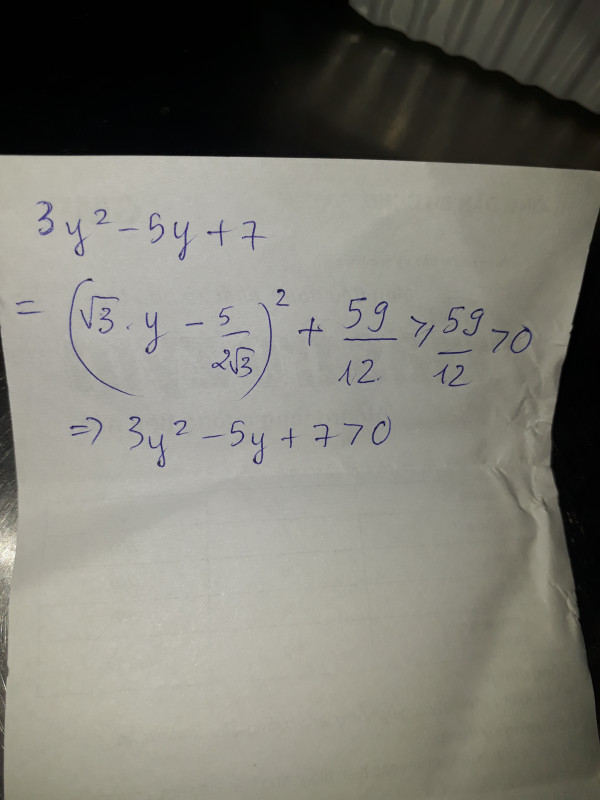 3y² - 5y + 7
= (√3 · y - 5/2√3)² + 59/12 ⩾ 59/12 > 0
=> 3y² - 5y + 7 > 0